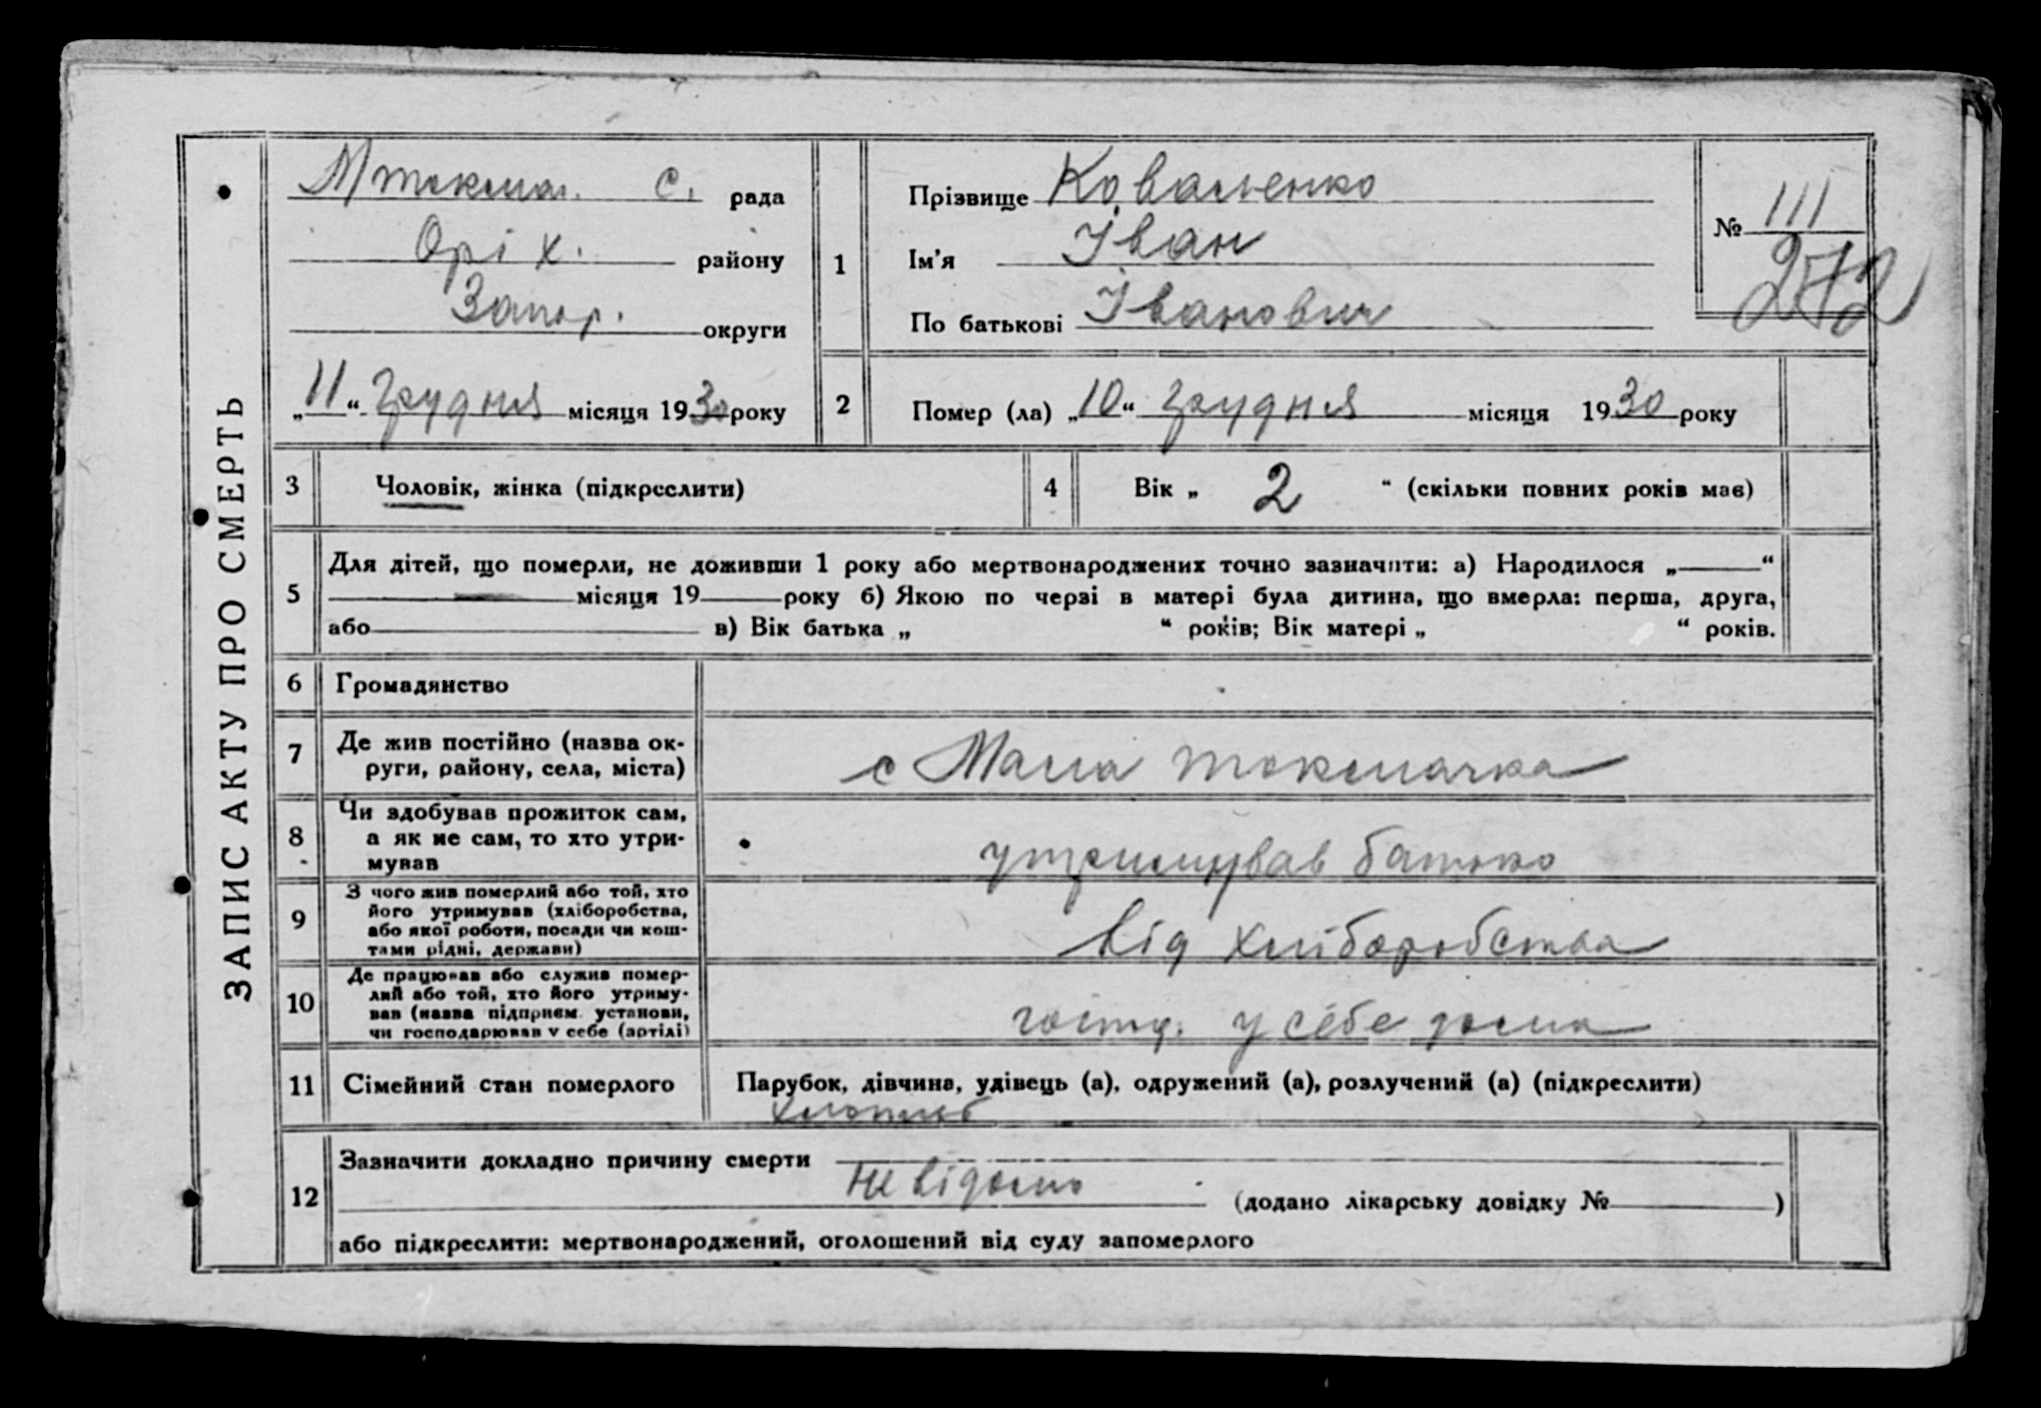 ЗАПИС АКТУ ПРО СМЕРТЬ
Мтокмач. С. рада
Оріх. району
Запор. округи
„11“ грудня місяця 1930 року
1
Прізвище Коваленко
Ім'я Іван
По батькові Іванович
№ 111
272
2 Помер (ла) „10“ грудня місяця 1930 року
3 Чоловік, жінка (підкреслити)
4 Вік „ 2 “ (скільки повних років має)
5 Для дітей, що померли, не доживши 1 року або мертвонароджених точно зазначити: а) Народилося „ “
місяця 19 року б) Якою по черзі в матері була дитина, що вмерла: перша, друга,
або в) Вік батька „ “ років; Вік матері „ “ років.
6 Громадянство
7 Де жив постійно (назва ок-
руги, району, села, міста)
с Мала токмачка
8 Чи здобував прожиток сам,
а як не сам, то хто утри-
мував
утримував батько
9 З чого жив померлий або той, хто
його утримував (хліборобства,
або якої роботи, посади чи кош-
тами рідні, держави)
від хліборобства
10 Де працював або служив помер-
лий або той, хто його утриму-
вав (назва підприєм. установи,
чи господарював у себе (артілі)
у себе дома
11 Сімейний стан померлого
Парубок, дівчина, удівець (а), одружений (а), розлучений (а) (підкреслити)
хлопець
12 Зазначити докладно причину смерти
не відомо (додано лікарську довідку № )
або підкреслити: мертвонароджений, оголошений від суду запомерлого